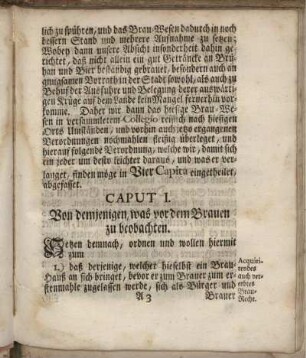 lich zu spühren, und das Brau-Wesen dadurch in noch
bessern Stand und mehrere Aufnahme zu setzen;
Wobey dann unsere Absicht insonderheit dahin ge-
richtet, daß nicht allein ein gut Geträncke an Brü-
han und Bier beständig gebrauet, besondern auch an
gnugsamen Vorrath in der Stadt sowohl, als auch zu
Behuf der Ausfuhre und Belegung derer auswärti-
gen Krüge auf dem Lande kein Mangel fernerhin vor-
komme. Daher wir dann das hiesige Brau-We-
sen in versammletem Collegio reiflich nach hiesigen
Orts Umständen, und vorhin auch jetzo ergangenen
Verordnungen nochmahlen fleißig überleget, und
hierauf folgende Verordnung, welche wir, damit sich
ein jeder um desto leichter daraus, und was er ver-
langet, finden möge in Vier Capita eingetheilet,
abgefasset.
CAPUT I.
Von demjenigen, was vor dem Brauen
zu beobachten.
Setzen demnach, ordnen und wollen hiermit
zum
1.) daß derjenige, welcher hieselbst ein Brau-
Hauß an sich bringet, bevor er zum Brauer zum er-
stenmahle zugelassen werde, sich als Bürger und
A 3 Brauer
Acquiri-
rendes
auch ver-
erbtes
Brau-
Recht.